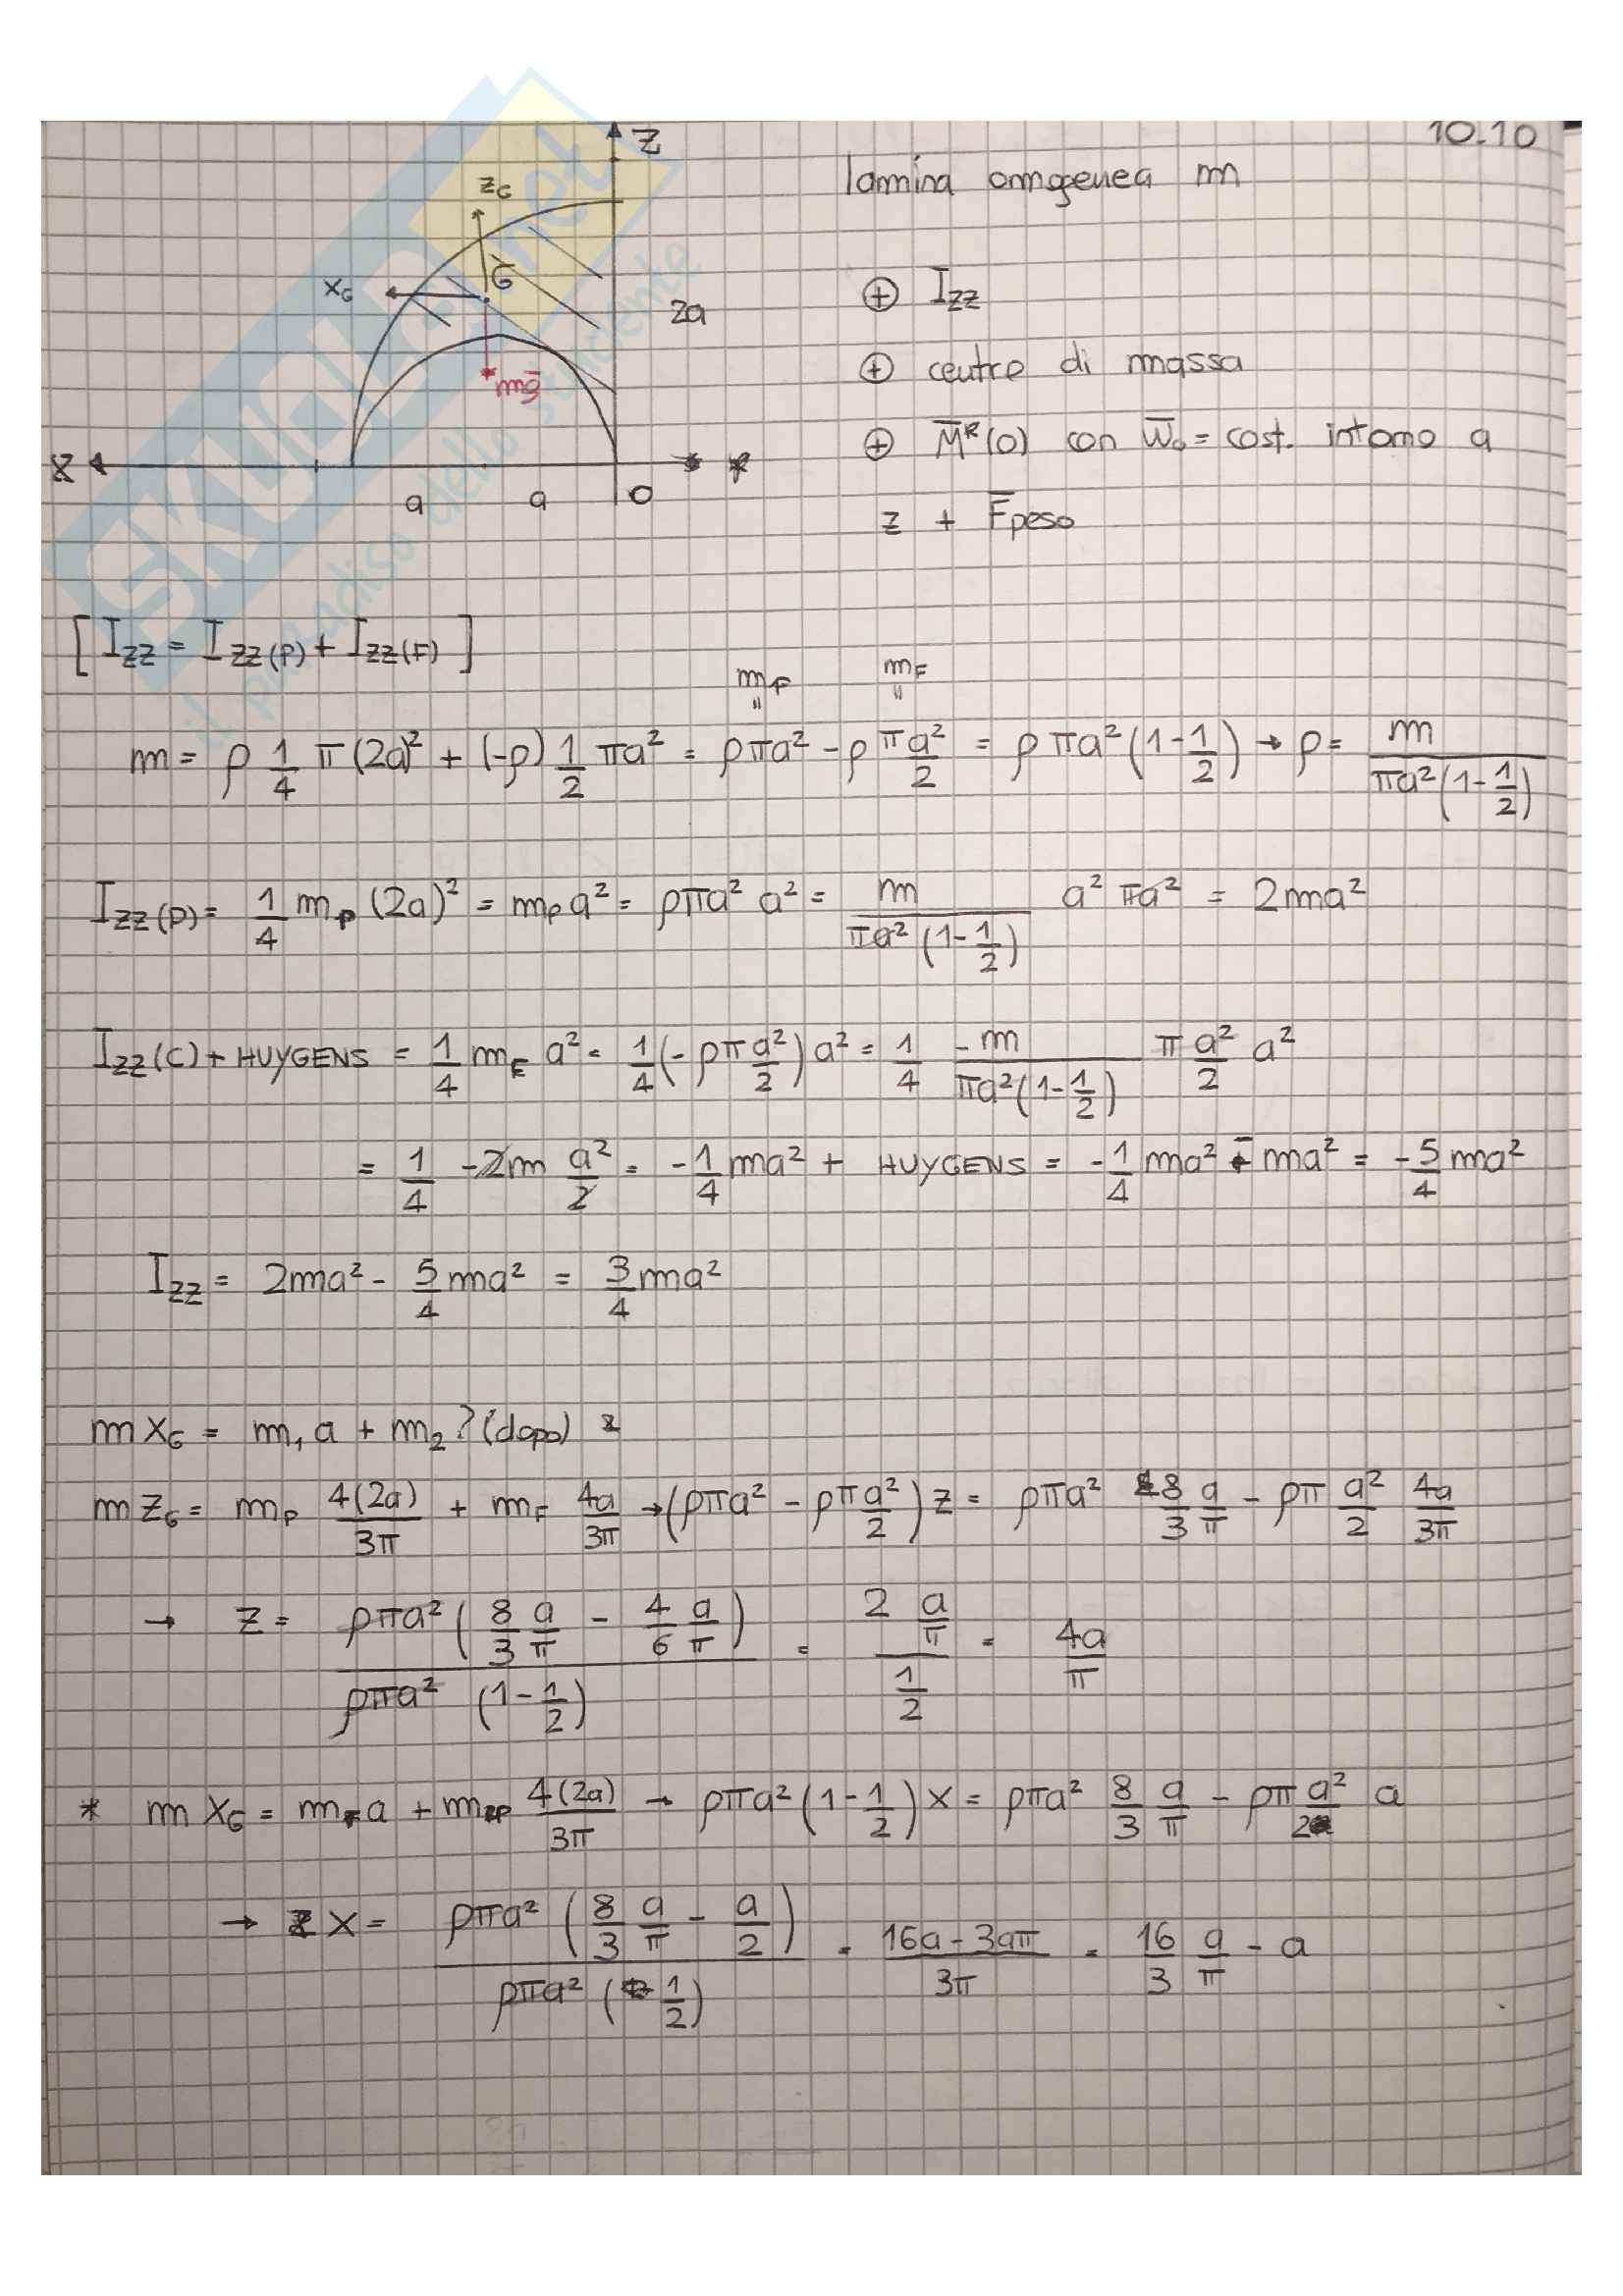 10.10
lamina omogenea m
Z
z_G
G
x_G
2a
mg̅
X
a a O
⊕ I_zz
⊕ centro di massa
⊕ M̅ᴿ(O) con w̅₀ = cost. intorno a
z + F̅peso
[ I_zz = I_zz(P) + I_zz(F) ]
m_F m_F
m = ρ 1/4 π (2a)² + (-ρ) 1/2 πa² = ρπa² - ρ πa²/2 = ρ πa² (1 - 1/2) → ρ = m / πa²(1 - 1/2)
I_zz(P) = 1/4 m_P (2a)² = m_P a² = ρπa² a² = m / πa²(1 - 1/2) a² πa² = 2ma²
I_zz(C) + HUYGENS = 1/4 m_F a² = 1/4 (-ρπ a²/2) a² = 1/4 -m / πa²(1 - 1/2) π a²/2 a²
= 1/4 -2m a²/2 = -1/4 ma² + HUYGENS = -1/4 ma² - ma² = -5/4 ma²
I_zz = 2ma² - 5/4 ma² = 3/4 ma²
m x_G = m₁ a + m₂ ? (dopo)
m z_G = m_P 4(2a)/3π + m_F 4a/3π → (ρπa² - ρπ a²/2) z = ρπa² 8/3 a/π - ρπ a²/2 4a/3π
→ z = ρπa² (8/3 a/π - 4/6 a/π) / ρπa² (1 - 1/2) = 2 a/π / 1/2 = 4a/π
* m x_G = m_F a + m_P 4(2a)/3π → ρπa² (1 - 1/2) x = ρπa² 8/3 a/π - ρπ a²/2 a
→ x = ρπa² (8/3 a/π - a/2) / ρπa² (1/2) = 16a - 3aπ / 3π = 16/3 a/π - a
SKUOLA.net
il paradiso dello studente